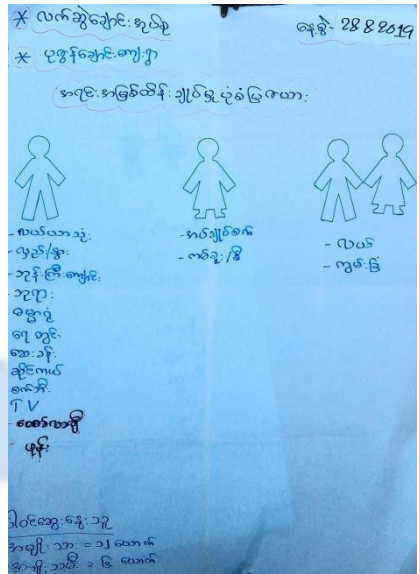 * လက်ဆွဲချောင်းအုပ်စု
နေ့စွဲ- 28.8.2019
* ပုဇွန်ချောင်းကျေးရွာ
အရင်းအမြစ်ထိန်းချုပ်မှုပုံစံပြဇယား
- လယ်ယာသုံး
- လှည်း/နွား
- ဘုန်းကြီးကျောင်း
- ဘုရား
ဓမ္မာရုံ
ရေတွင်း
ဆေးခန်း
ဆိုင်ကယ်
စက်ဘီး
TV
- ဆိုလာ
- ဖုန်း
- အပ်ချုပ်စက်
- လယ်
- ကွမ်းခြံ
ပါဝင်ဆွေးနွေးသူ
အမျိုးသား = ၁၂ ယောက်
အမျိုးသမီး = ၆ ယောက်